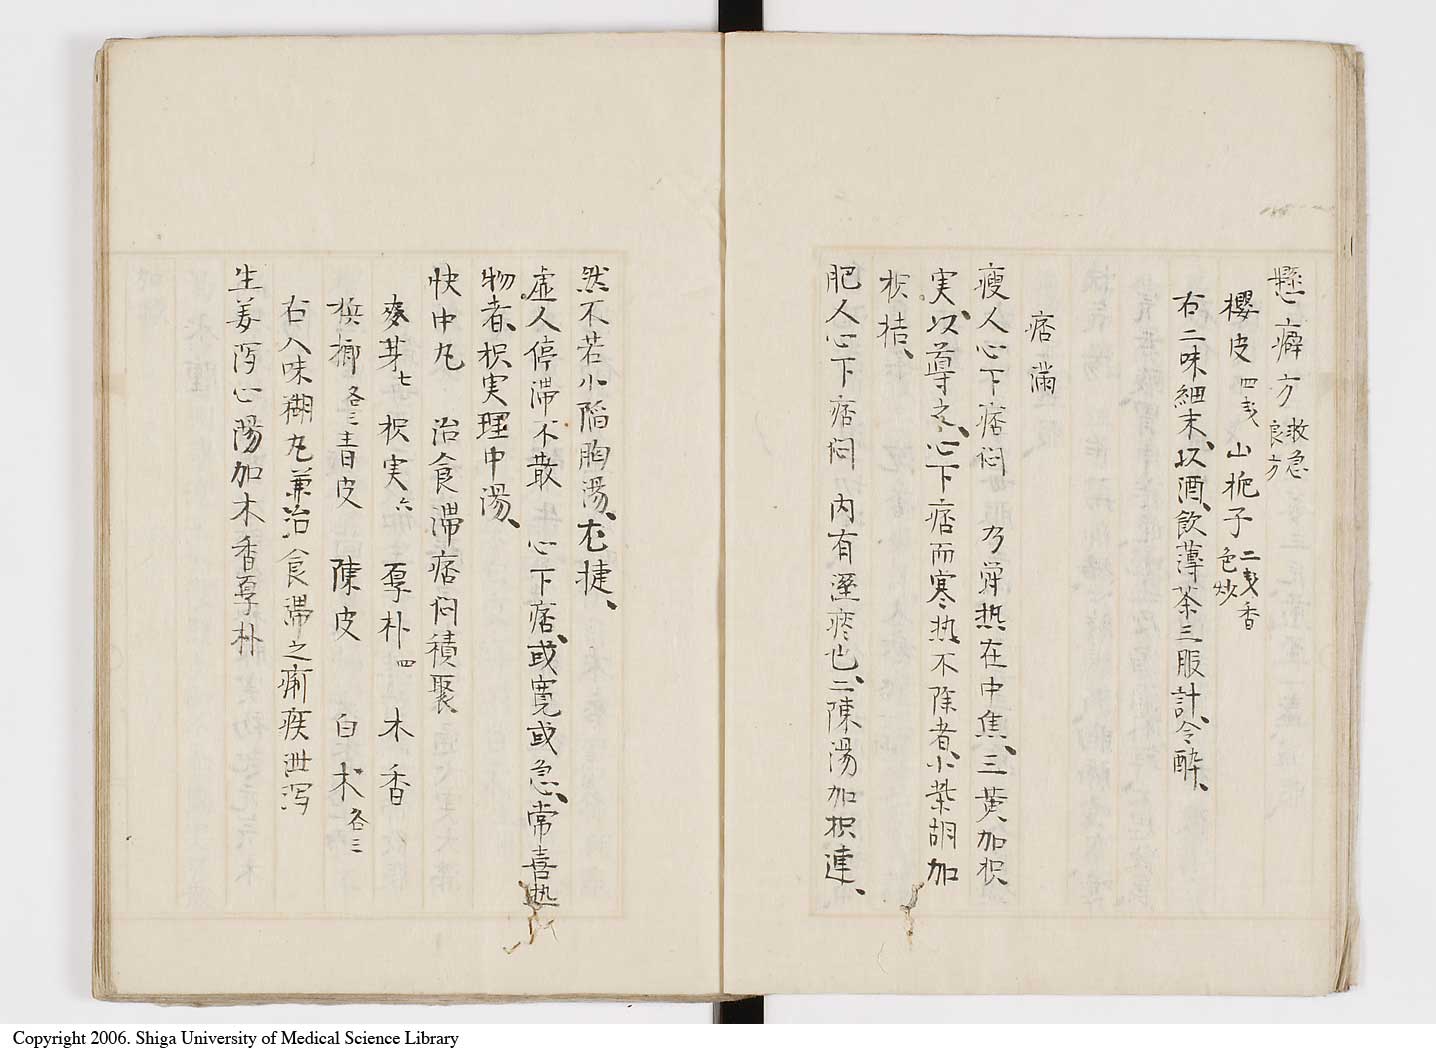 懸癖方 救急良方
櫻皮 四戔 山梔子 二戔香色炒
右二味細末、以酒、飲薄茶三服計、令酔、
痞満
瘦人心下痞悶 乃欝热在中焦、三黄、加枳、
実、以導之、心下痞而寒热不除者、小柴胡加
枳桔、
肥人心下痞悶 内有湿痰也、二陳湯加枳連、
然不若小陥胸湯、尤捷、
虚人停滞不散 心下痞、或寛或急、常喜热
物者、枳実理中湯、
快中丸 治食滞痞悶積聚、
麦芽 七 枳実 六 厚朴 四 木香
檳榔 各三 青皮 陳皮 白术 各三
右八味糊丸兼治食滞之痢疾泄泻
生姜泻心湯加木香厚朴
Copyright 2006. Shiga University of Medical Science Library